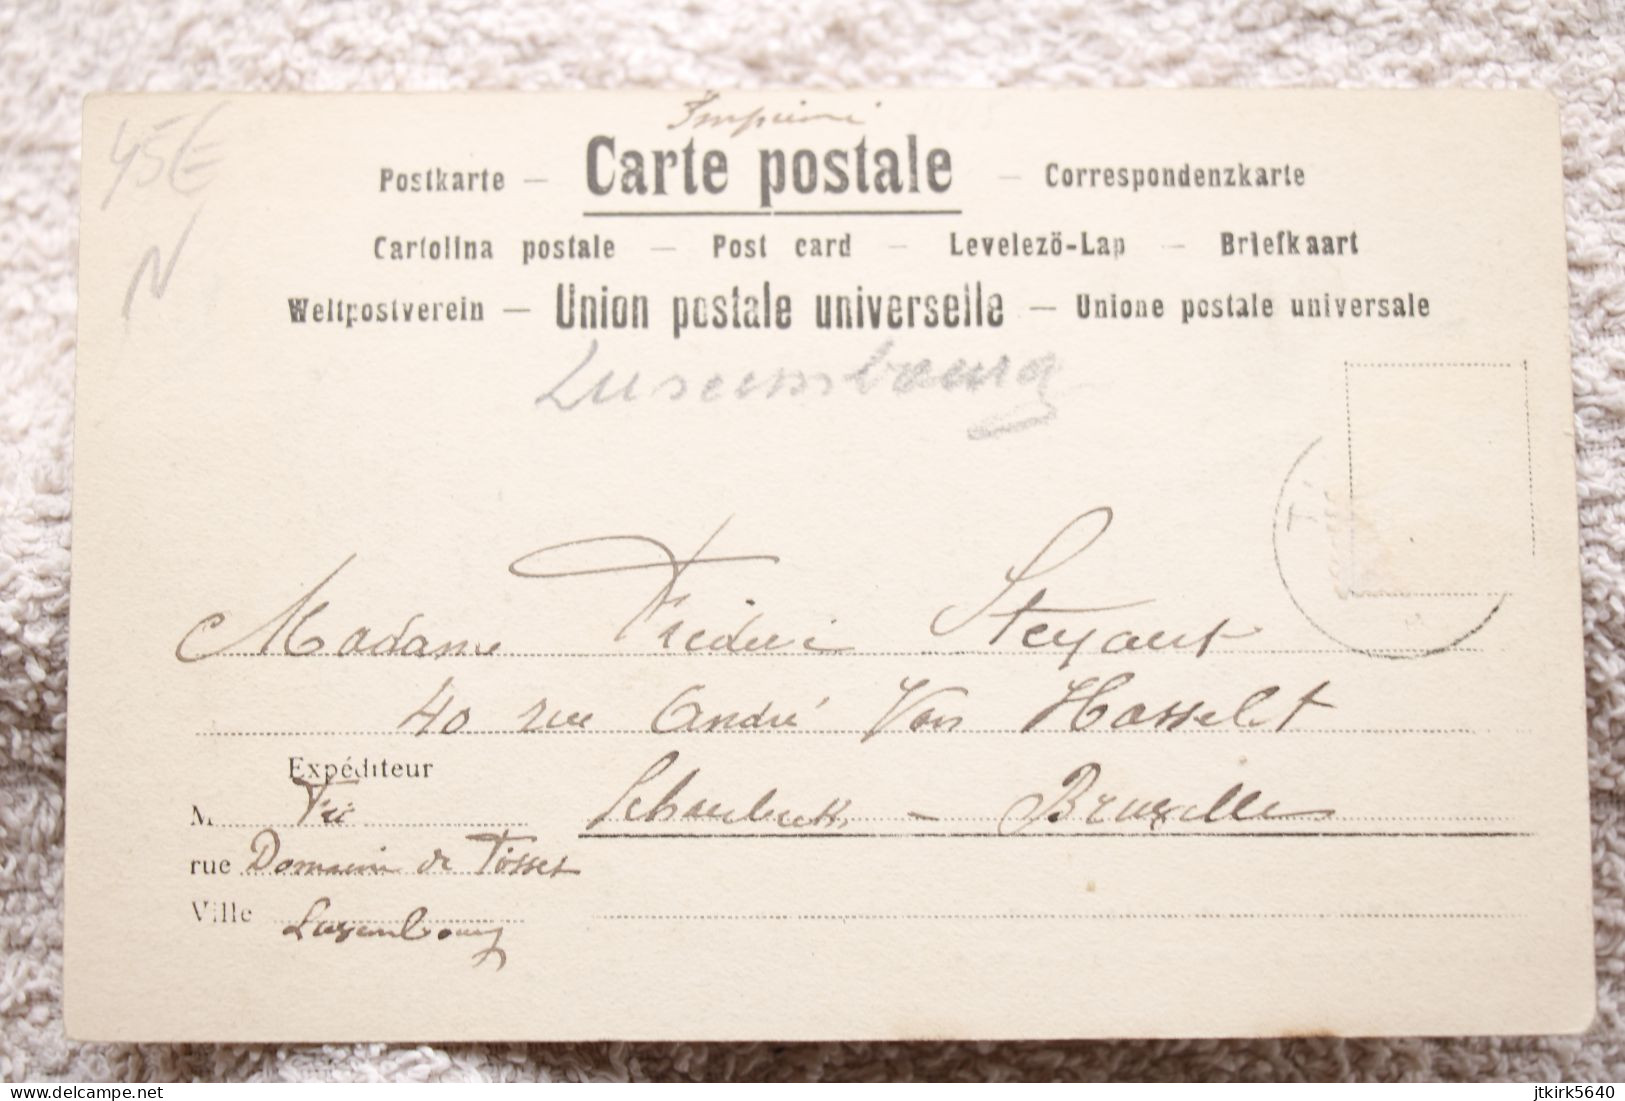 Imprimé
45€
Postkarte — Carte postale — Correspondenzkarte
N
Cartolina postale — Post card — Levelezö-Lap — Briefkaart
Weltpostverein — Union postale universelle — Unione postale universale
Luxembourg
Madame Frédéric Steyaert
40 rue André Van Hasselt
Schaerbeek — Bruxelles
Expéditeur
M
rue Domaine de
Ville Luxembourg
delcampe.net
jtkirk5640